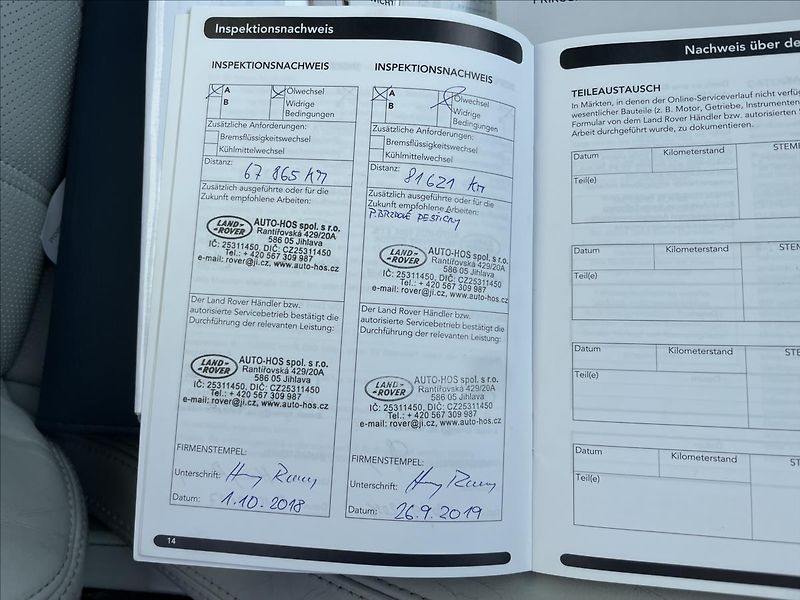 Inspektionsnachweis
INSPEKTIONSNACHWEIS
A
B
Ölwechsel
Widrige
Bedingungen
Zusätzliche Anforderungen:
Bremsflüssigkeitswechsel
Kühlmittelwechsel
Distanz:
67 865 KM
Zusätzlich ausgeführte oder für die
Zukunft empfohlene Arbeiten:
LAND-ROVER
AUTO-HOS spol. s r.o.
Rantířovská 429/20A
586 05 Jihlava
IČ: 25311450, DIČ: CZ25311450
Tel.: + 420 567 309 987
e-mail: rover@ji.cz, www.auto-hos.cz
Der Land Rover Händler bzw.
autorisierte Servicebetrieb bestätigt die
Durchführung der relevanten Leistung:
LAND-ROVER
AUTO-HOS spol. s r.o.
Rantířovská 429/20A
586 05 Jihlava
IČ: 25311450, DIČ: CZ25311450
Tel.: + 420 567 309 987
e-mail: rover@ji.cz, www.auto-hos.cz
FIRMENSTEMPEL:
Unterschrift:
Datum: 1.10.2018
14
INSPEKTIONSNACHWEIS
A
B
Ölwechsel
Widrige
Bedingungen
Zusätzliche Anforderungen:
Bremsflüssigkeitswechsel
Kühlmittelwechsel
Distanz:
81621 KM
Zusätzlich ausgeführte oder für die
Zukunft empfohlene Arbeiten:
LAND-ROVER
AUTO-HOS spol. s r.o.
Rantířovská 429/20A
586 05 Jihlava
IČ: 25311450, DIČ: CZ25311450
Tel.: + 420 567 309 987
e-mail: rover@ji.cz, www.auto-hos.cz
Der Land Rover Händler bzw.
autorisierte Servicebetrieb bestätigt die
Durchführung der relevanten Leistung:
LAND-ROVER
AUTO-HOS spol. s r.o.
Rantířovská 429/20A
586 05 Jihlava
IČ: 25311450, DIČ: CZ25311450
Tel.: + 420 567 309 987
e-mail: rover@ji.cz, www.auto-hos.cz
FIRMENSTEMPEL:
Unterschrift:
Datum: 26.9.2019
Nachweis über de
TEILEAUSTAUSCH
In Märkten, in denen der Online-Serviceverlauf nicht verfüg
wesentlicher Bauteile (z. B. Motor, Getriebe, Instrumenten
Formular von dem Land Rover Händler bzw. autorisierten
Arbeit durchgeführt wurde, zu dokumentieren.
Datum Kilometerstand STEMP
Teil(e)
Datum Kilometerstand STEM
Teil(e)
Datum Kilometerstand STE
Teil(e)
Datum Kilometerstand ST
Teil(e)